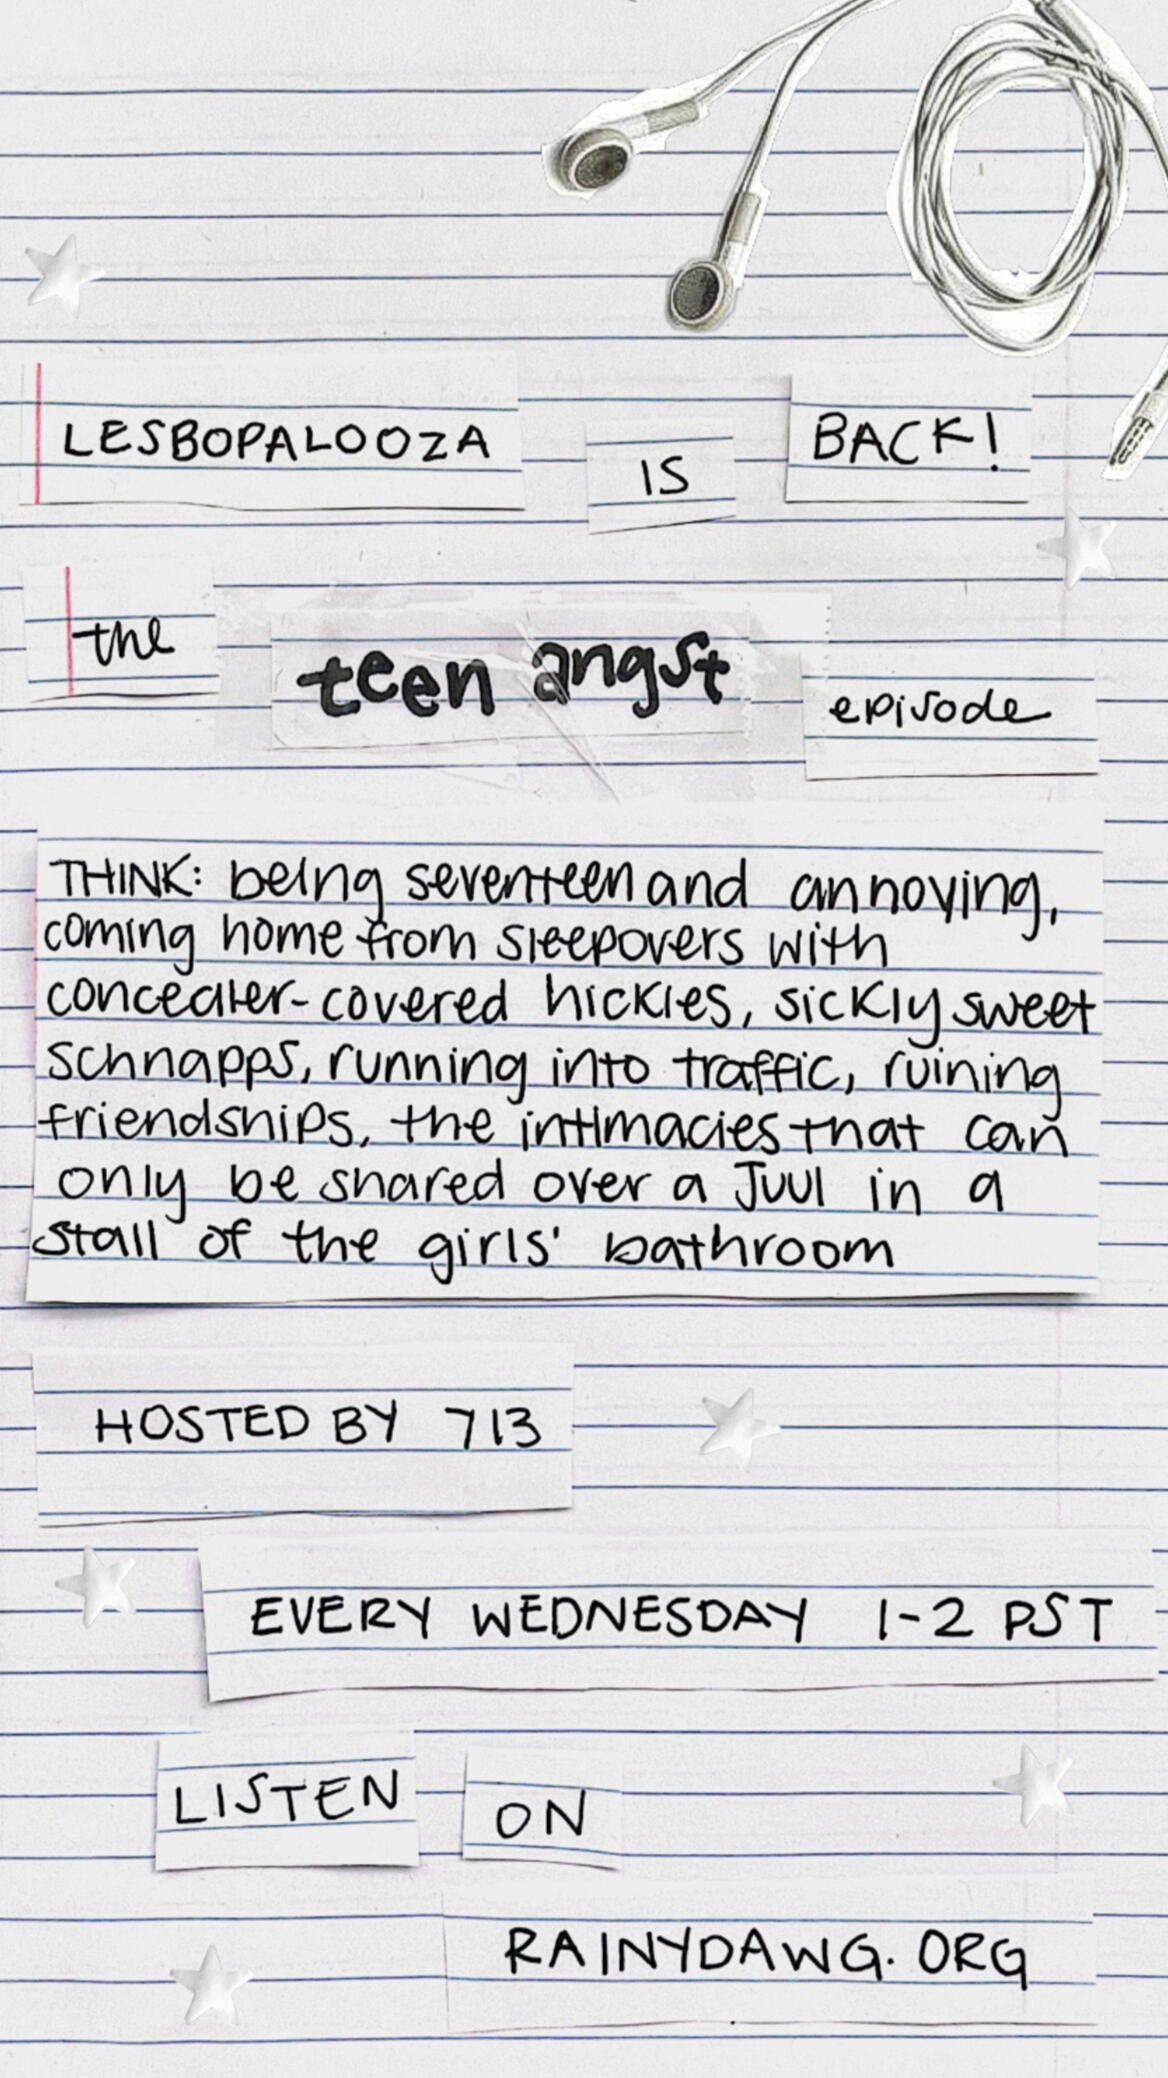 LESBOPALOOZA IS BACK!
the teen angst episode
THINK: being seventeen and annoying,
coming home from sleepovers with
concealer-covered hickies, sickly sweet
schnapps, running into traffic, ruining
friendships, the intimacies that can
only be shared over a Juul in a
stall of the girls' bathroom
HOSTED BY 713
EVERY WEDNESDAY 1-2 PST
LISTEN ON
RAINYDAWG.ORG